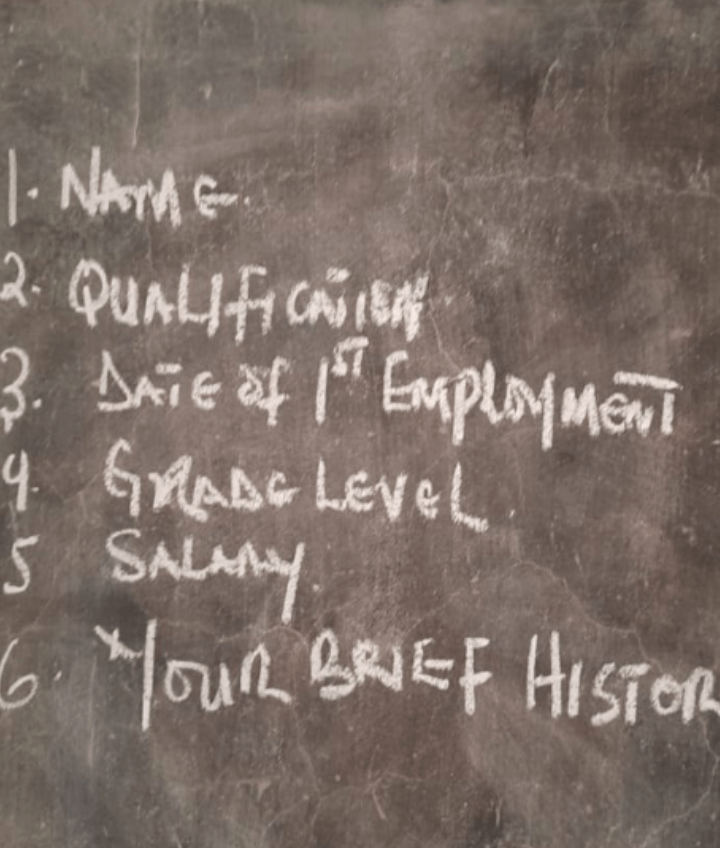 1. NAME.
2. QUALIFICATION
3. DATE of 1ST EMPLOYMENT
4. GRADE LEVEL.
5 SALARY.
6. YOUR BRIEF HISTOR